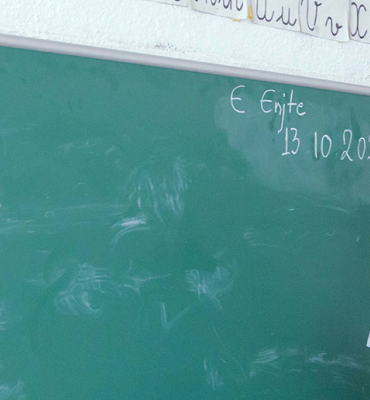 U u V v X
E Enjte
13 10 202